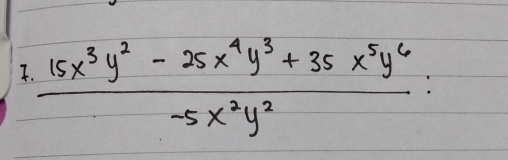 7. 15x³y² - 25x⁴y³ + 35 x⁵y⁶ :
-5x²y²